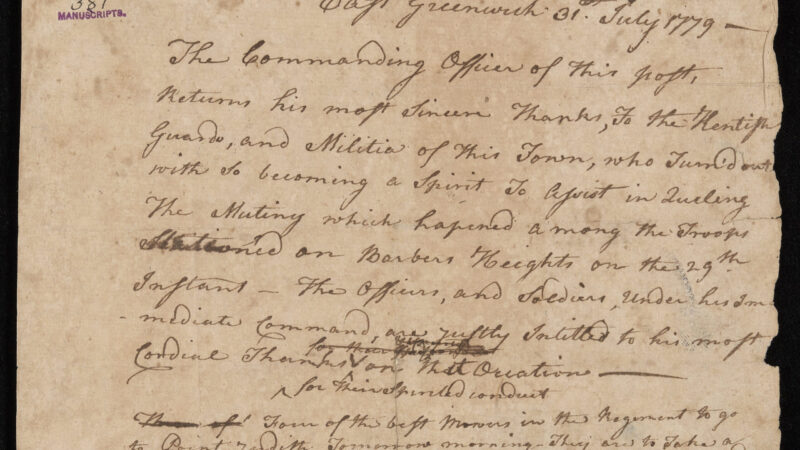 381
MANUSCRIPTS.
East Greenwich 31st July 1779 —
The Commanding Officer of this post,
Returns his most Sincere Thanks, To the Kentish
Guards, and Militia of this Town, who Turn'd out
with So becoming a Spirit To Assist in Queling
The Mutiny which hapened a mong the Troops
Stationed on Barbers Heights on the 29th
Instant — The Officers, and Soldiers, Under his Im
-mediate Command are Justly Intitled to his most
for their
Cordial Thanks on that Ocation —
for Their Spirited conduct
Four of the best Mowers in the Regement to go
to Point Judith Tomorrow morning - They are to Take a